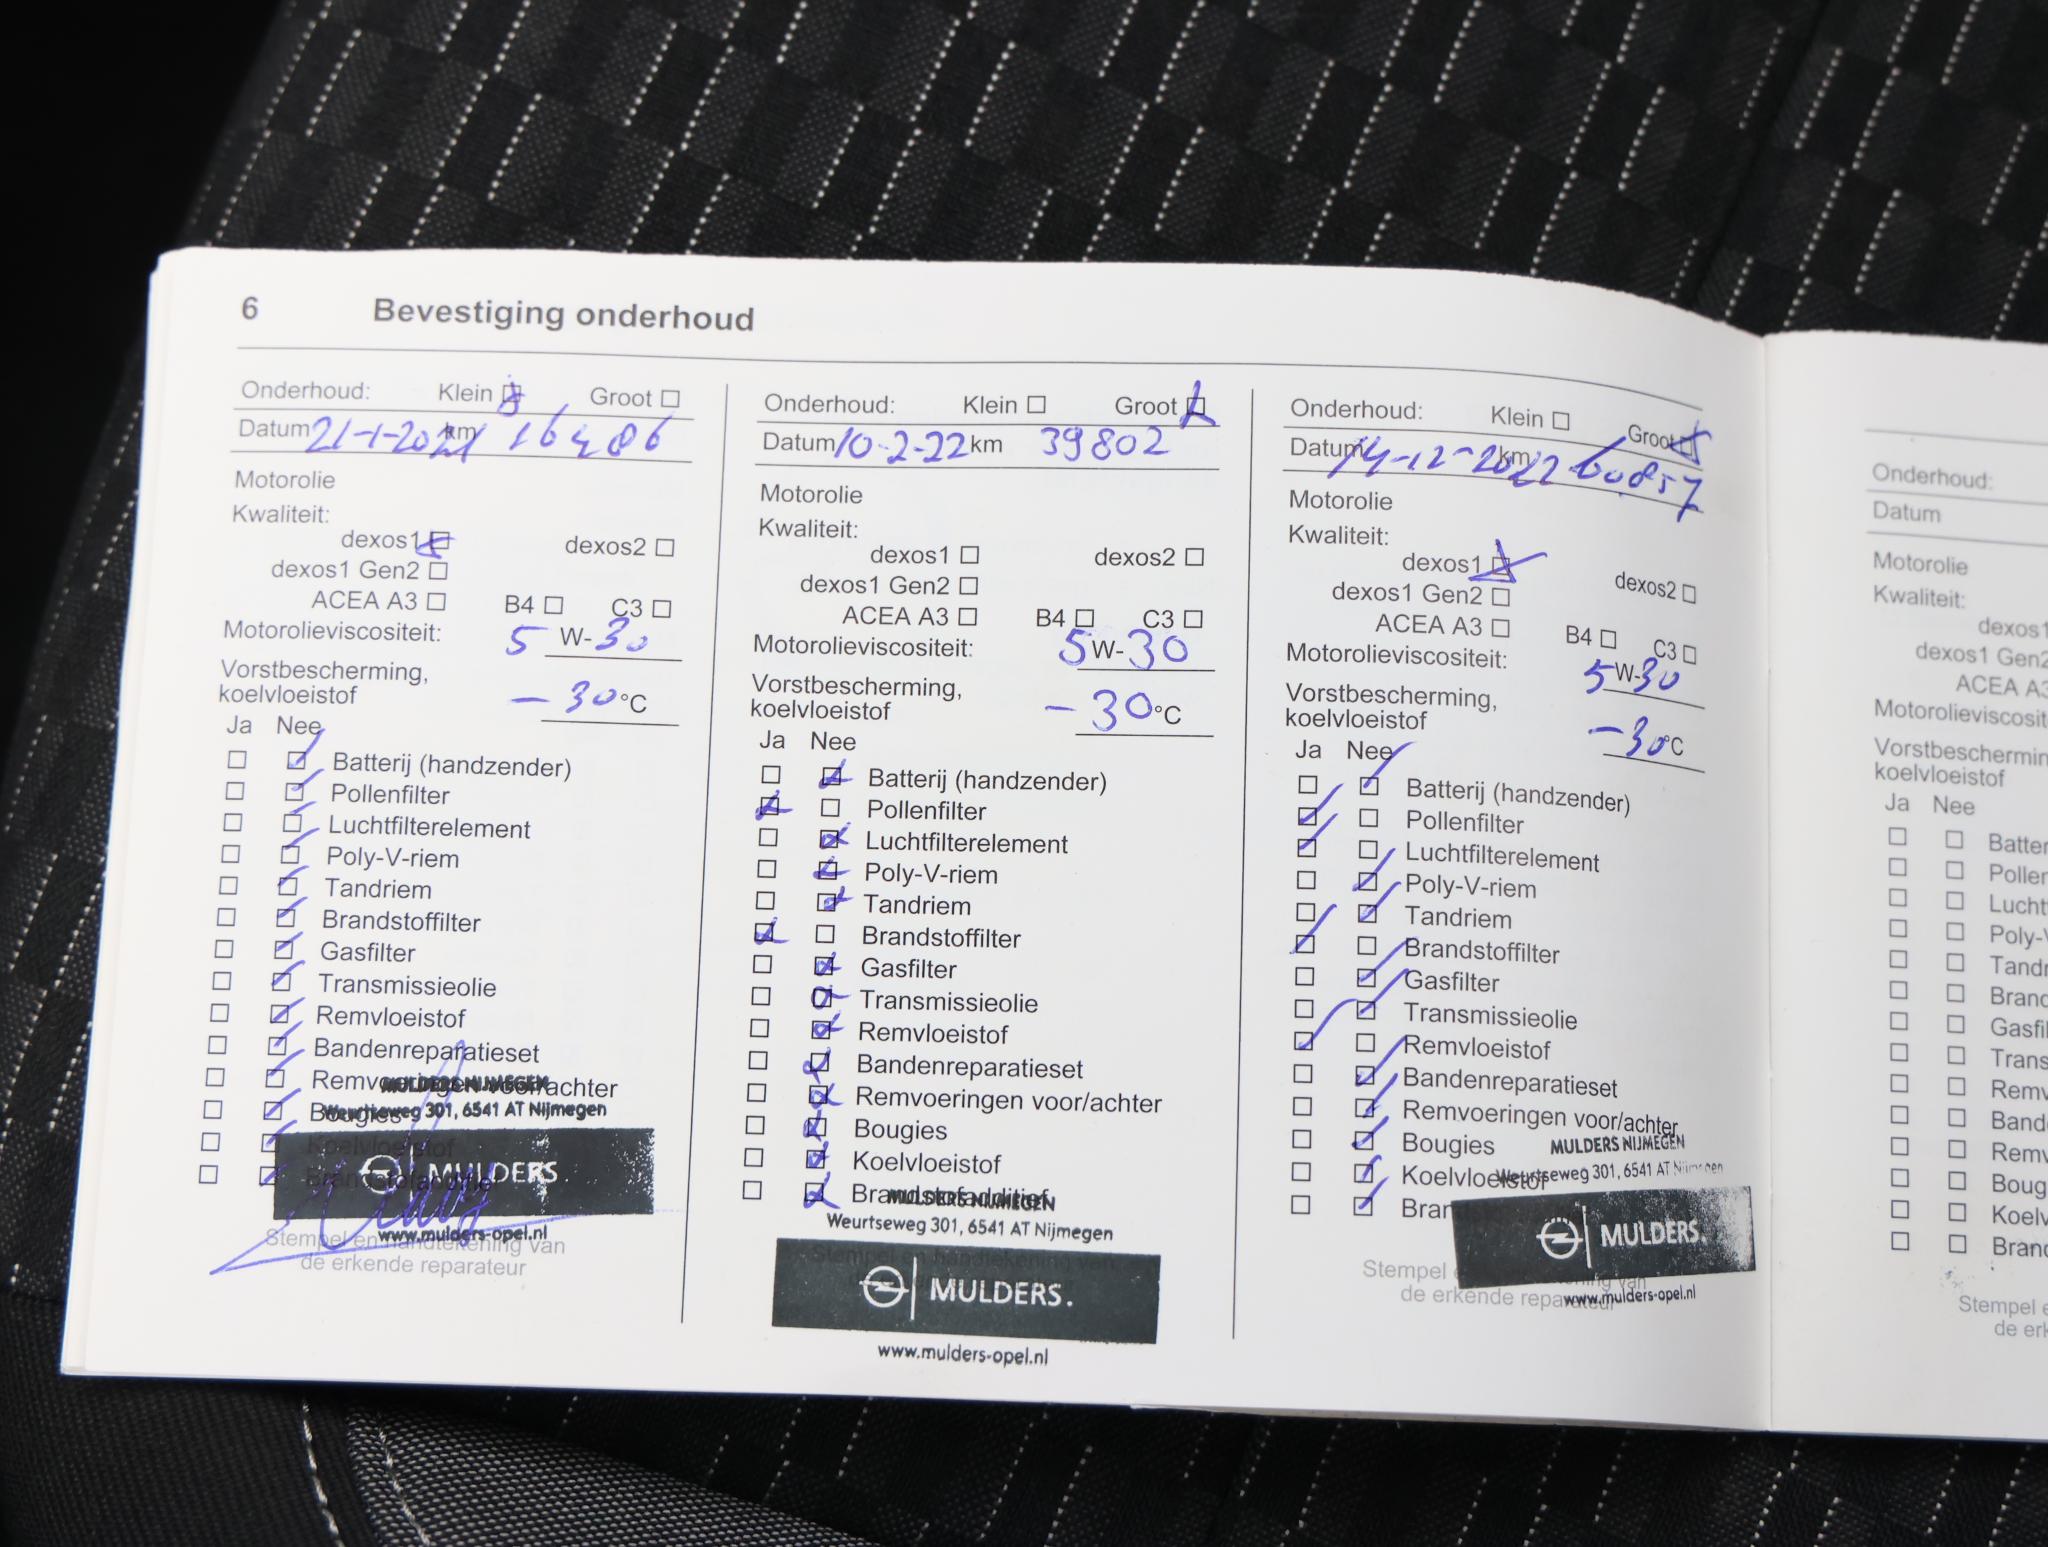 6 Bevestiging onderhoud
Onderhoud: Klein Groot
Datum 21-1-2021 km 16486
Motorolie
Kwaliteit:
dexos1 dexos2
dexos1 Gen2
ACEA A3 B4 C3
Motorolieviscositeit: 5 W-30
Vorstbescherming,
koelvloeistof -30 °C
Ja Nee
Batterij (handzender)
Pollenfilter
Luchtfilterelement
Poly-V-riem
Tandriem
Brandstoffilter
Gasfilter
Transmissieolie
Remvloeistof
Bandenreparatieset
Remvoeringen voor/achter
MULDERS NIJMEGEN
Bougies
Weurtseweg 301, 6541 AT Nijmegen
Koelvloeistof
MULDERS.
Brandstofadditief
www.mulders-opel.nl
Stempel en handtekening van
de erkende reparateur
Onderhoud: Klein Groot
Datum 10-2-22 km 39802
Motorolie
Kwaliteit:
dexos1 dexos2
dexos1 Gen2
ACEA A3 B4 C3
Motorolieviscositeit: 5 W-30
Vorstbescherming,
koelvloeistof -30 °C
Ja Nee
Batterij (handzender)
Pollenfilter
Luchtfilterelement
Poly-V-riem
Tandriem
Brandstoffilter
Gasfilter
Transmissieolie
Remvloeistof
Bandenreparatieset
Remvoeringen voor/achter
Bougies
Koelvloeistof
Brandstofadditief
MULDERS NIJMEGEN
Weurtseweg 301, 6541 AT Nijmegen
Stempel en handtekening van
MULDERS.
www.mulders-opel.nl
Onderhoud: Klein Groot
Datum 14-12-2022 km 60857
Motorolie
Kwaliteit:
dexos1 dexos2
dexos1 Gen2
ACEA A3 B4 C3
Motorolieviscositeit: 5 W-30
Vorstbescherming,
koelvloeistof -30 °C
Ja Nee
Batterij (handzender)
Pollenfilter
Luchtfilterelement
Poly-V-riem
Tandriem
Brandstoffilter
Gasfilter
Transmissieolie
Remvloeistof
Bandenreparatieset
Remvoeringen voor/achter
Bougies
MULDERS NIJMEGEN
Koelvloeistof
Weurtseweg 301, 6541 AT Nijmegen
Bran
MULDERS.
Stempel en handtekening van
de erkende reparateur
www.mulders-opel.nl
Onderhoud:
Datum
Motorolie
Kwaliteit:
dexos1
dexos1 Gen2
ACEA A3
Motorolieviscosit
Vorstbeschermin
koelvloeistof
Ja Nee
Batter
Pollen
Lucht
Poly-V
Tand
Bran
Gasfi
Trans
Remv
Band
Remv
Boug
Koelv
Bran
Stempel e
de erk